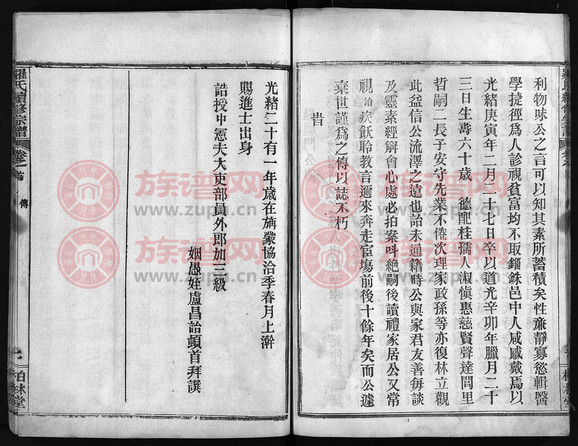 利物味公之言可以知其素所蓄積矣性亷靜寡慾輯醫
學捷徑爲人診視貧富均不取錙銖邑中人咸感戴焉以
光緒庚寅年二月二十七日卒以道光辛卯年臘月二十
三日生壽六十歲　德配桂孺人淑愼惠慈賢聲達閭里
哲嗣二長子安守先業不倦次理家政孫等亦復林立觀
此益信公流澤之遠也詒未通籍時公與家君友善每談
及靈素經解會心處必拍案呌絶嗣後讀禮家居公又常
視詒疾飫聆教言邇來奔走宦塲前後十餘年矣而公遽
棄世謹爲之傳以誌不朽
旹
光緒二十有一年歲在旃蒙協洽季春月上澣
賜進士出身
誥授中憲大夫吏部員外郎加三級
姻愚姪盧昌詒頓首拜譔
羅氏續修宗譜
卷之首
傳
柏林堂
族谱网
www.zupu.cn
族谱网
www.zupu.cn
族谱网
www.zupu.cn
族谱网
www.zupu.cn
族谱网
www.zupu.cn
族谱网
www.zupu.cn